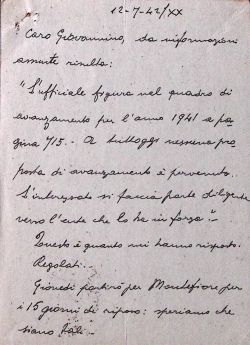 12-7-42/XX
Caro Giovannino, da informazioni
assunte risulta:
"L'ufficiale figura nel quadro di
avanzamento per l'anno 1941 a pa-
gina 715.- A tutt'oggi nessuna pro
posta di avanzamento è pervenuta.
L'interessato si faccia parte diligente
verso l'ente che lo ha in forza".-
Questo è quanto mi hanno risposto.
Regolati.
Giovedì partirò per Montefiore per
i 15 giorni di riposo: speriamo che
siano tali.-